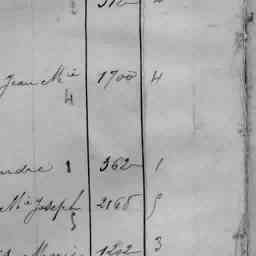 Jean Mie 1700 4
4
ndre 1 362 1
Mie Joseph 2168 5
5
Marie 1202 3